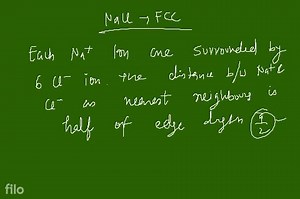 NaCl → FCC
Each Na⁺ Ion are surrounded by
6 Cl⁻ ion the distance b/w Na⁺ &
Cl⁻ as nearest neighbours is
half of edge length a/2
filo